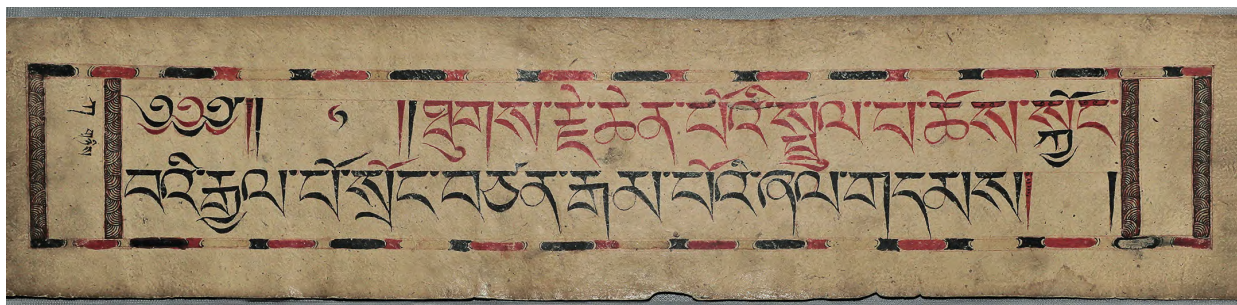 ཀ
༄༅༅།། ༡ །།ཐུགས་རྗེ་ཆེན་པོའི་སྤྲུལ་པ་ཆོས་སྐྱོང་
བའི་རྒྱལ་པོ་སྲོང་བཙན་རྒམ་པོའི་ཞལ་གདམས། །